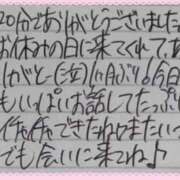 20分でありがとうございました
お休みの日に来てくれてあ
りがとー(泣)1ヶ月ぶり!今日
もいっぱいお話してたっぷり
イチャイチャできたねㅤまたいつ
でも会いに来てね♪